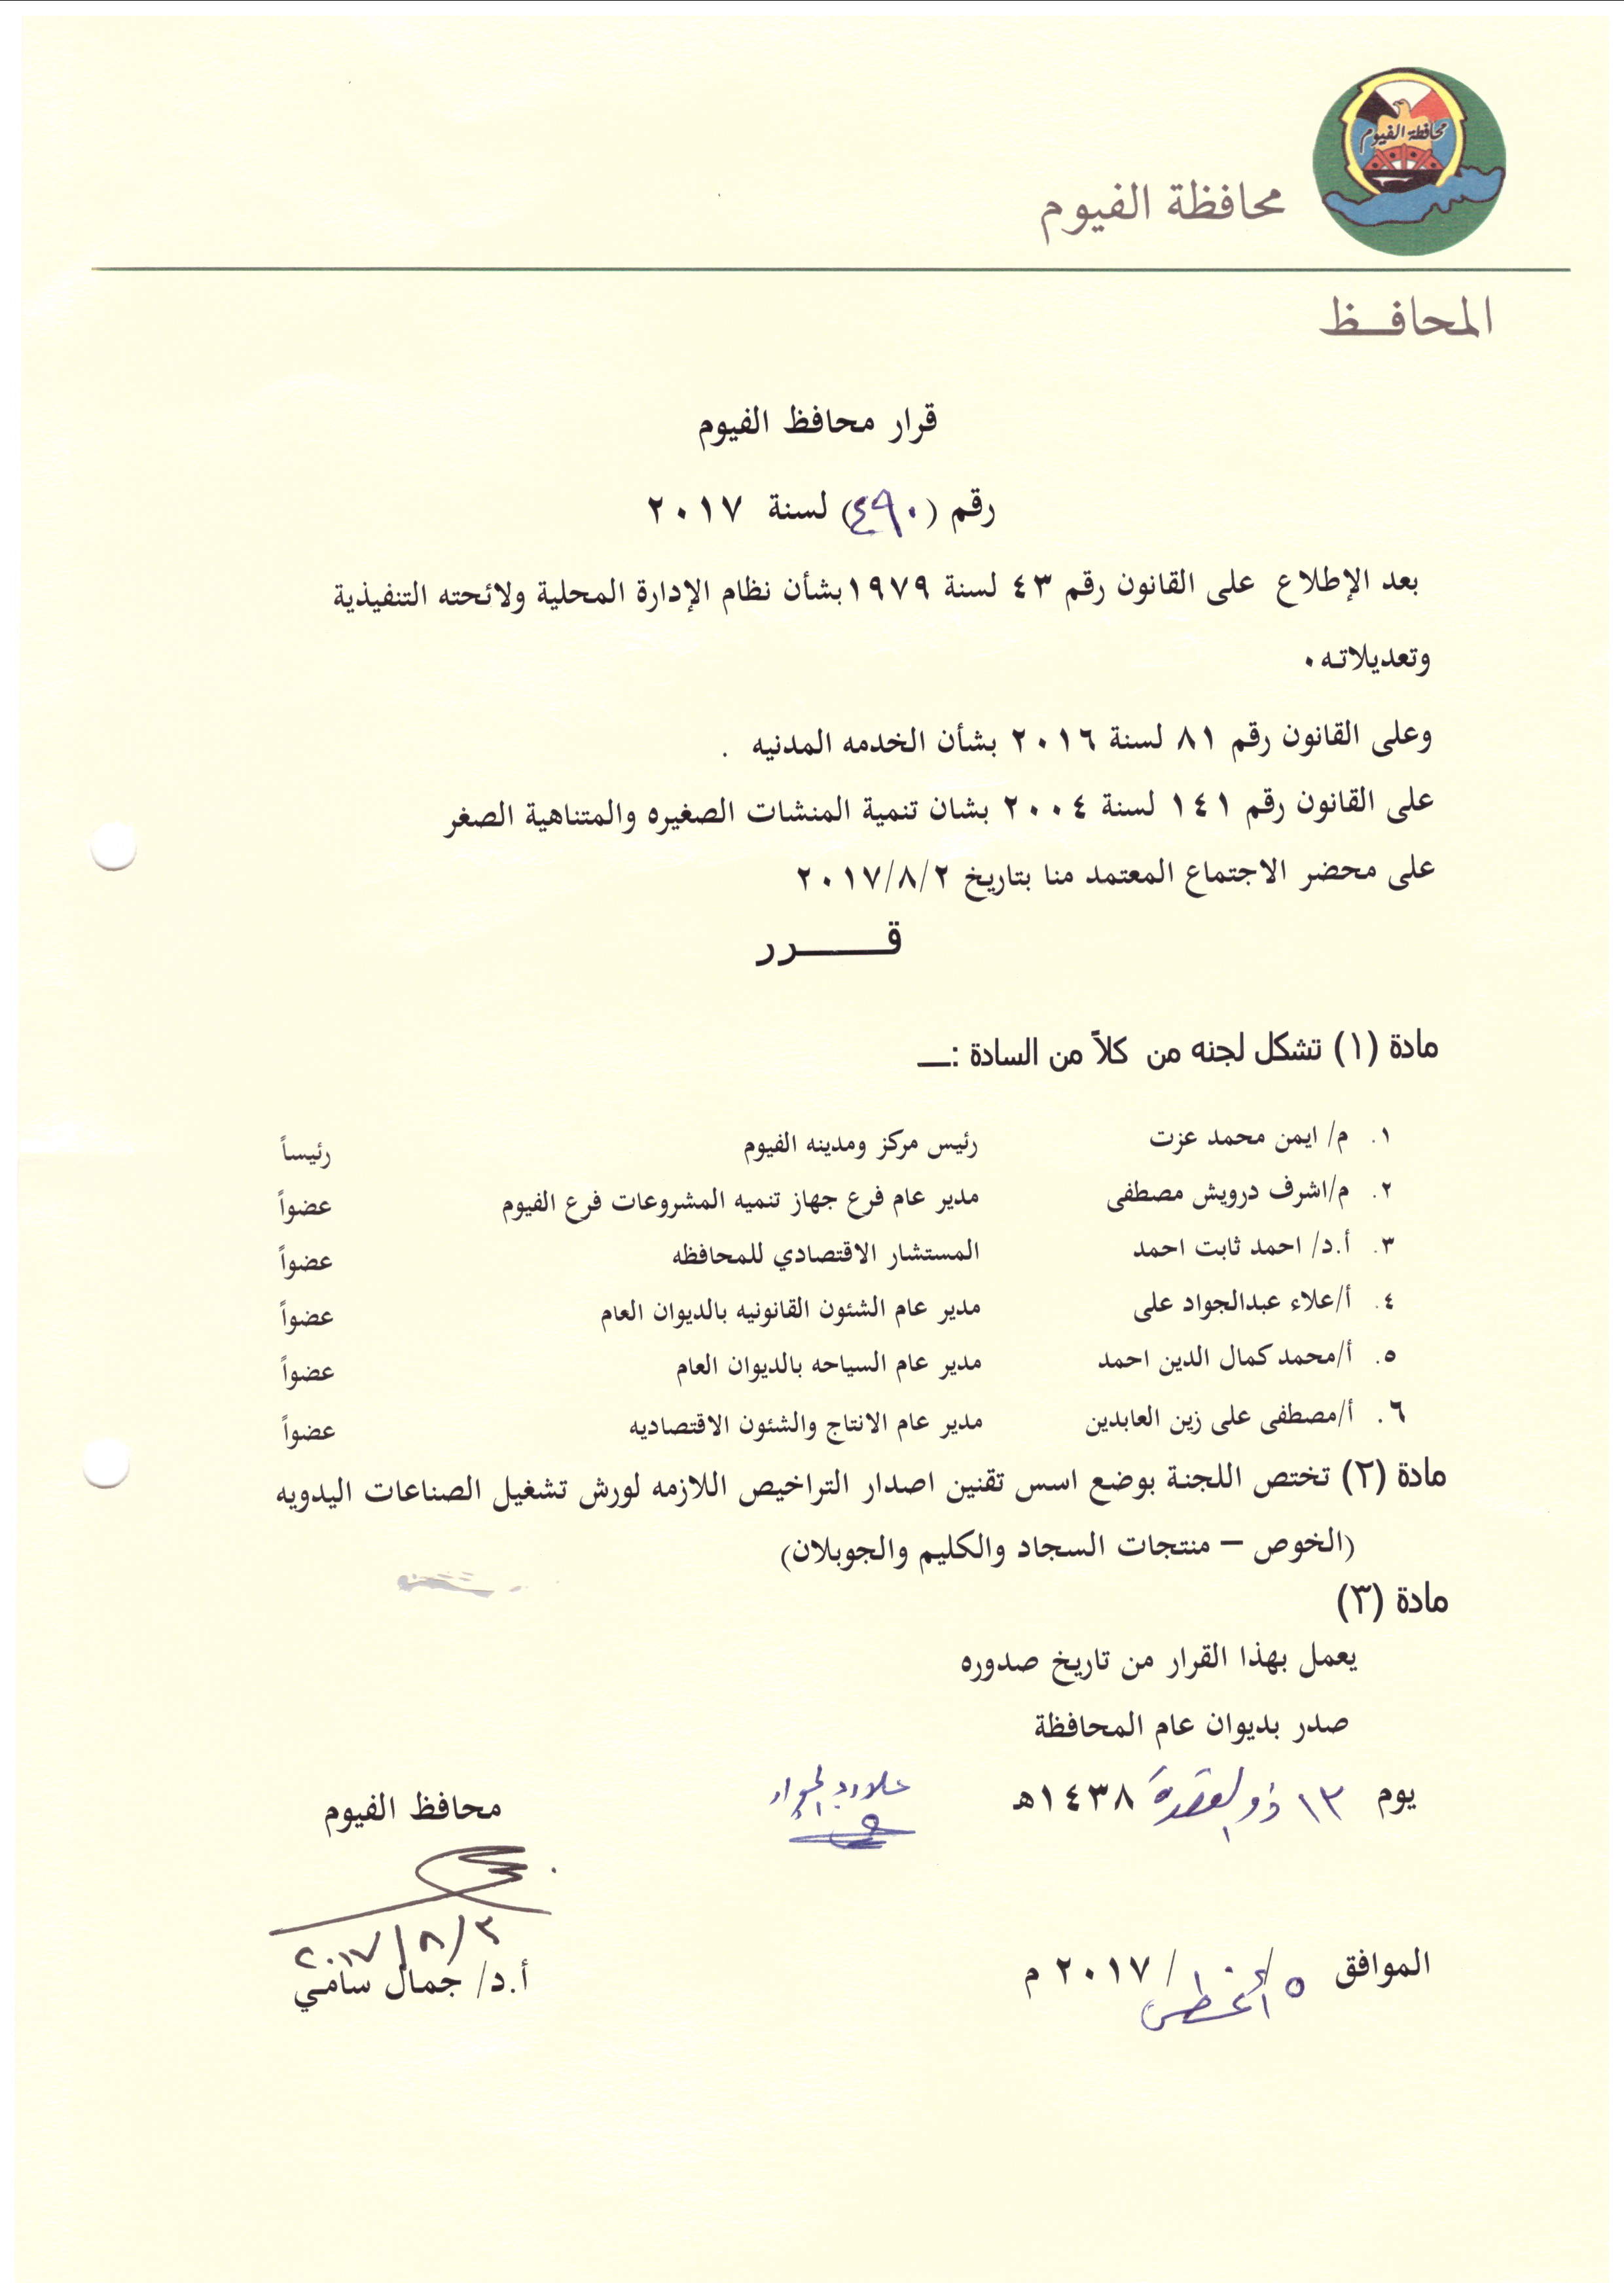 محافظة الفيوم
محافظة الفيوم
المحافــظ
قرار محافظ الفيوم
رقم (٤٩٠) لسنة ٢٠١٧
بعد الإطلاع على القانون رقم ٤٣ لسنة ١٩٧٩بشأن نظام الإدارة المحلية ولائحته التنفيذية
وتعديلاته٠
وعلى القانون رقم ٨١ لسنة ٢٠١٦ بشأن الخدمه المدنيه .
على القانون رقم ١٤١ لسنة ٢٠٠٤ بشان تنمية المنشات الصغيره والمتناهية الصغر
على محضر الاجتماع المعتمد منا بتاريخ ٢٠١٧/٨/٢
قــــــرر
مادة (١) تشكل لجنه من كلاً من السادة :ــ
١. م/ ايمن محمد عزت رئيس مركز ومدينه الفيوم رئيساً
٢. م/اشرف درويش مصطفى مدير عام فرع جهاز تنميه المشروعات فرع الفيوم عضواً
٣. أ.د/ احمد ثابت احمد المستشار الاقتصادي للمحافظه عضواً
٤. أ/علاء عبدالجواد على مدير عام الشئون القانونيه بالديوان العام عضواً
٥. أ/محمد كمال الدين احمد مدير عام السياحه بالديوان العام عضواً
٦. أ/مصطفى على زين العابدين مدير عام الانتاج والشئون الاقتصاديه عضواً
مادة (٢) تختص اللجنة بوضع اسس تقنين اصدار التراخيص اللازمه لورش تشغيل الصناعات اليدويه
(الخوص – منتجات السجاد والكليم والجوبلان)
مادة (٣)
يعمل بهذا القرار من تاريخ صدوره
صدر بديوان عام المحافظة
يوم ١٣ ذو القعدة ١٤٣٨هـ
محافظ الفيوم
٢٠١٧/٨/٣
أ.د/ جمال سامي
الموافق ٥ / أغسطس / ٢٠١٧ م